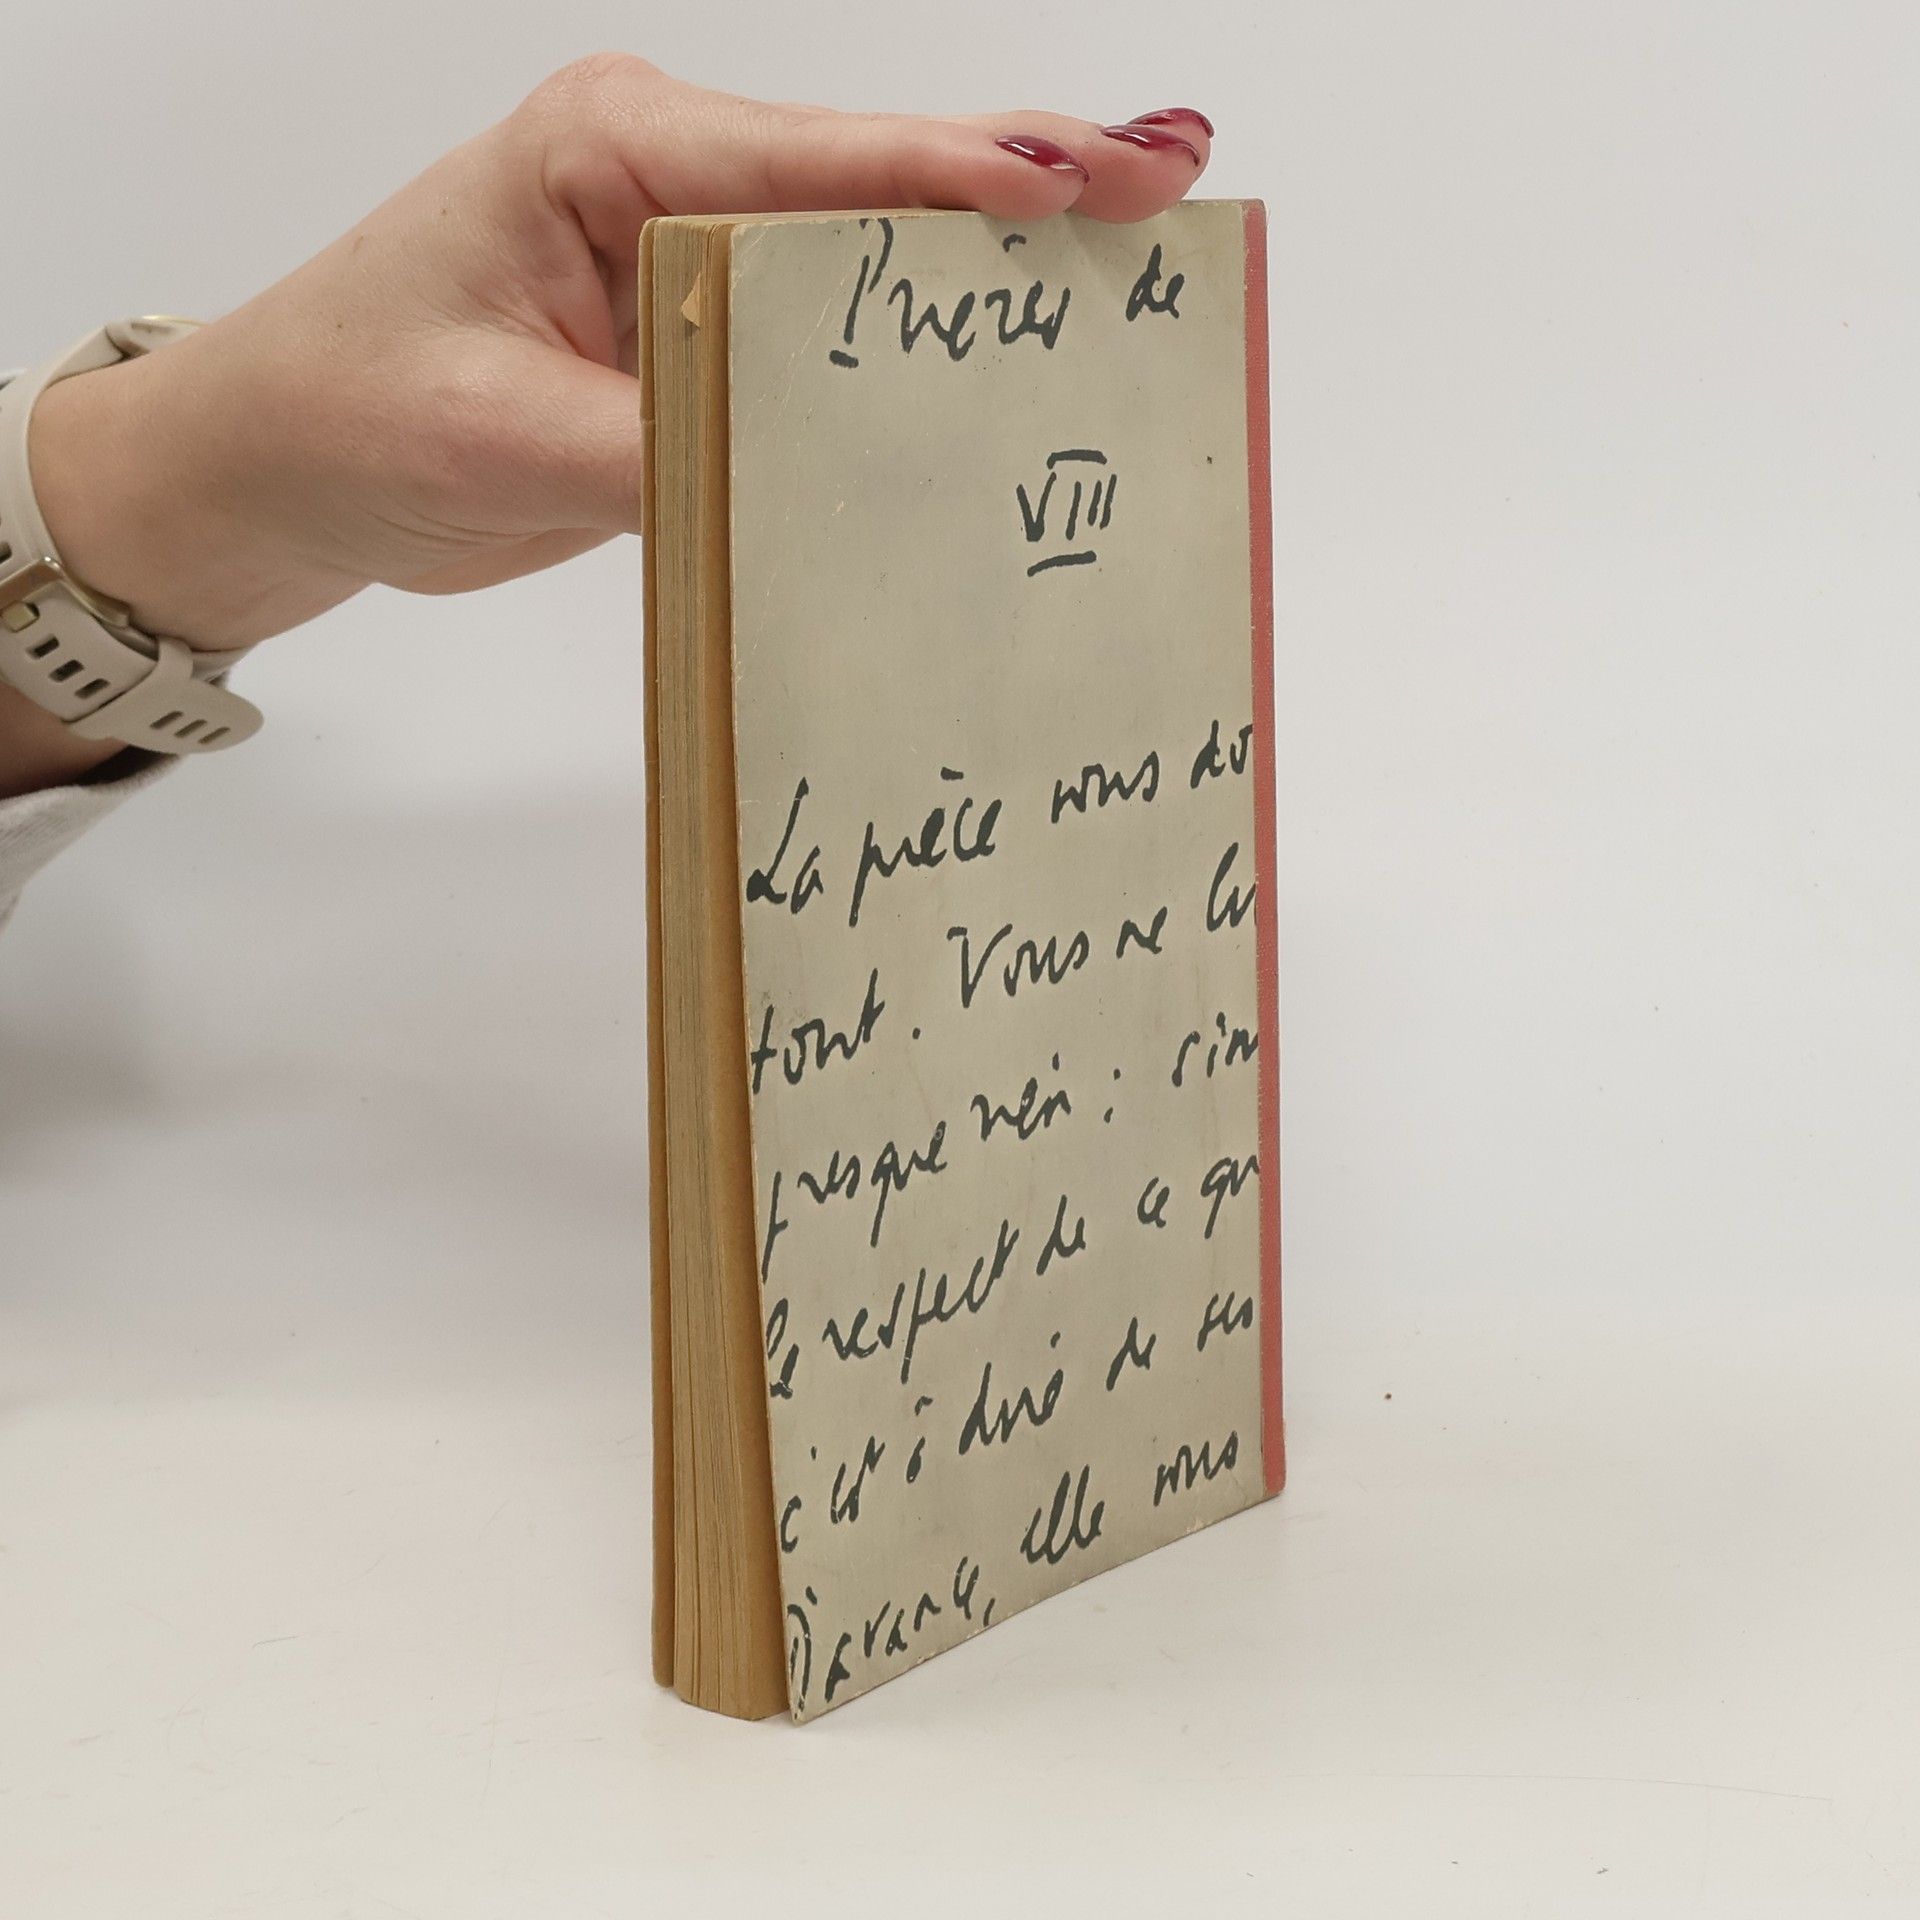 Prières de
VIII
La pièce vous do
tout. Vous ne lui
presque rien : sin
le respect de ce qu
c'est à dire de ses
D'avance, elle vous